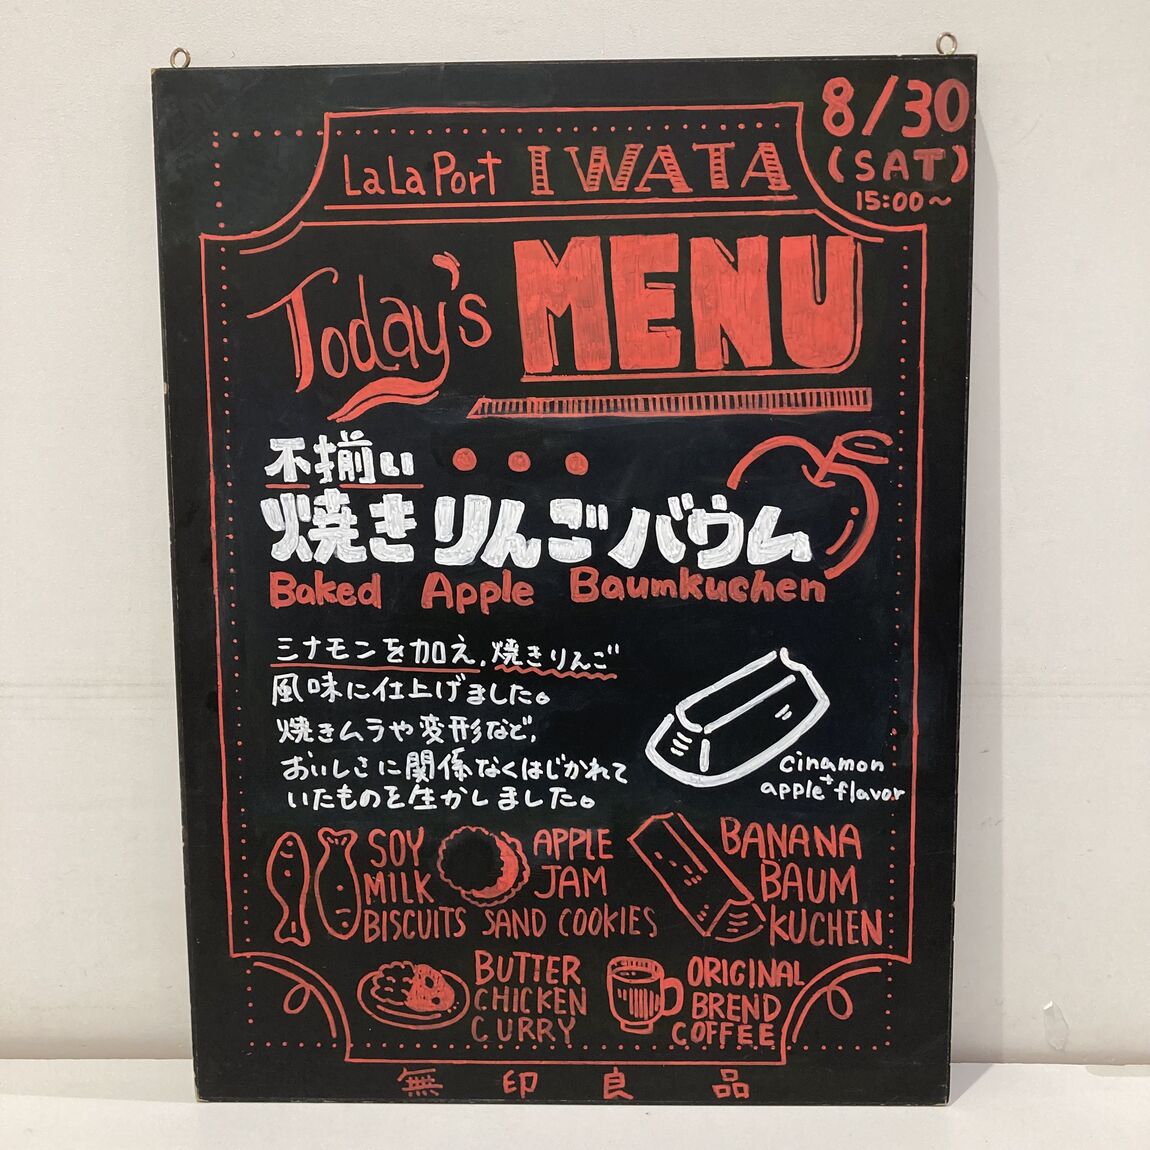 8/30
(SAT)
15:00~
LaLa Port IWATA
Today's MENU
不揃い
焼きりんごバウム
Baked Apple Baumkuchen
シナモンを加え,焼きりんご
風味に仕上げました。
焼きムラや変形など,
おいしさに関係なくはじかれて
いたものを生かしました。
cinamon
+
apple flavor
SOY
MILK
BISCUITS
APPLE
JAM
SAND COOKIES
BANANA
BAUM
KUCHEN
BUTTER
CHICKEN
CURRY
ORIGINAL
BREND
COFFEE
無印良品